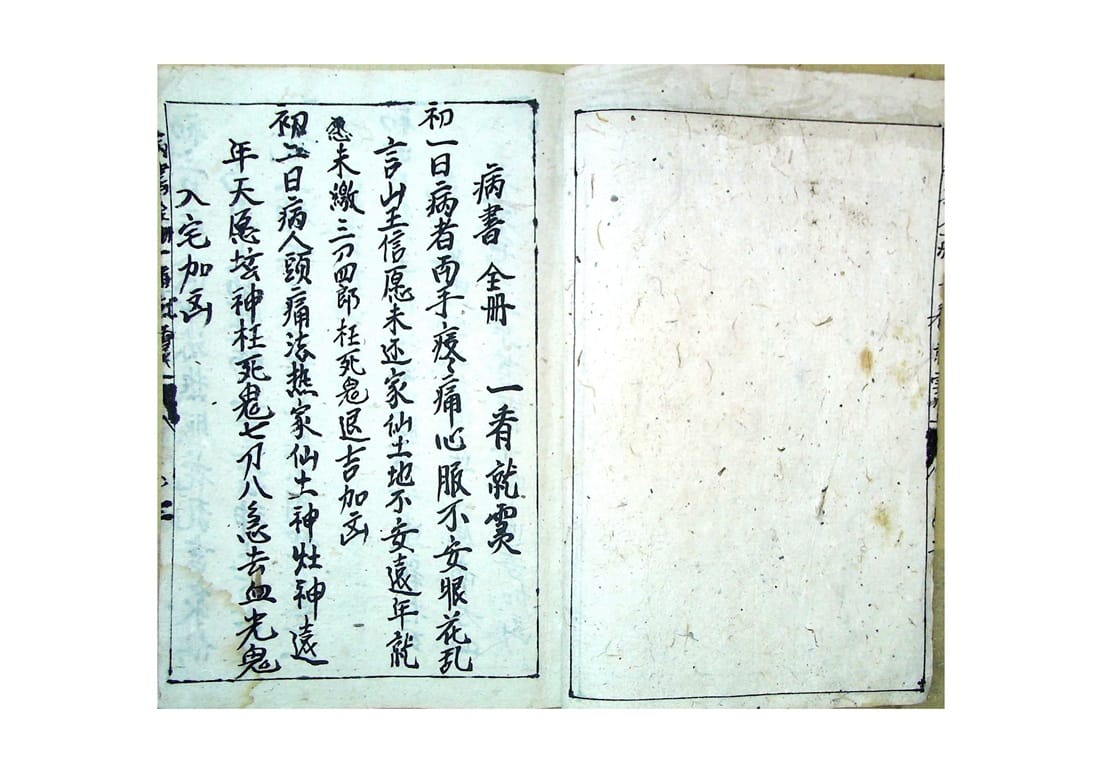 病書 全册 一看就灵
初一日病者两手疼痛心服不安眼花乱
言山王信愿未还家仙土地不安遠年就
愿未繳三刀四郎枉死鬼退吉加凶
初二日病人頭痛法热家仙土神灶神遠
年天愿坛神枉死鬼七刀八急去血光鬼
入宅加凶